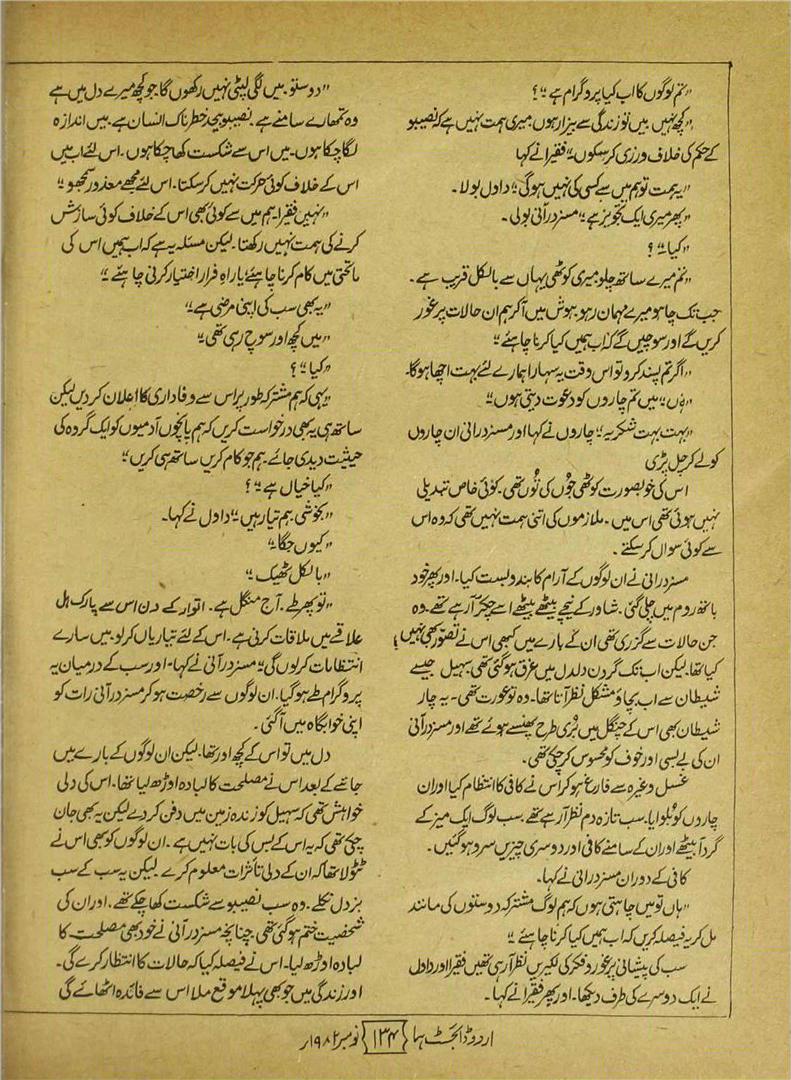 "تم لوگوں کا اب کیا پروگرام ہے"؟
"کچھ نہیں۔ میں تو زندگی سے بیزار ہوں۔ میری ہمت نہیں ہے کہ نصیبو
کے حکم کی خلاف ورزی کر سکوں" فقیرا نے کہا
"یہ ہمت تو ہم میں سے کسی کی نہیں ہوگی" دادل بولا۔
"پھر میری ایک تجویز ہے" مسز درانی بولی۔
"کیا"؟
"تم میرے ساتھ چلو۔ میری کوٹھی یہاں سے بالکل قریب ہے۔
جب تک چاہو میرے مہمان رہو۔ ہوش میں آکر ہم ان حالات پر غور
کریں گے اور سوچیں گے کہ اب ہمیں کیا کرنا چاہئے"
"اگر تم پسند کرو تو اس وقت یہ سہارا ہمارے لئے بہت اچھا ہوگا۔
"ہاں" میں تم چاروں کو دعوت دیتی ہوں"
"بہت بہت شکریہ" چاروں نے کہا اور مسز درانی ان چاروں
کو لے کر چل پڑی
اس کی خوبصورت کوٹھی جوں کی توں تھی۔ کوئی خاص تبدیلی
نہیں ہوئی تھی اس میں۔ ملازموں کی اتنی ہمت نہیں تھی کہ وہ اس
سے کوئی سوال کر سکتے۔
مسز درانی نے ان لوگوں کے آرام کا بندوبست کیا۔ اور پھر خود
باتھ روم میں چلی گئی۔ شاور کے نیچے بیٹھے بیٹھے اسے چکر آ رہے تھے۔ وہ
جن حالات سے گزری تھی ان کے بارے میں کبھی اس نے تصور بھی نہیں
کیا تھا۔ لیکن اب تک گردن دلدل میں غرق ہو گئی تھی۔ سہیل جیسے
شیطان سے اب بچاؤ مشکل نظر آتا تھا۔ وہ تو عورت تھی۔ یہ چار
شیطان بھی اس کے چنگل میں بری طرح پھنسے ہوئے تھے اور مسز درانی
ان کی بے بسی اور خوف کو محسوس کر چکی تھی۔
غسل وغیرہ سے فارغ ہو کر اس نے کافی کا انتظام کیا اور ان
چاروں کو بلوایا۔ سب تازہ دم نظر آ رہے تھے۔ سب لوگ ایک میز کے
گرد آ بیٹھے اور ان کے سامنے کافی اور دوسری چیزیں سرو ہو گئیں۔
کافی کے دوران مسز درانی نے کہا۔
"ہاں تو میں چاہتی ہوں کہ ہم لوگ مشترکہ دوستوں کی مانند
مل کر یہ فیصلہ کریں کہ اب ہمیں کیا کرنا چاہئے"
سب کی پیشانی پر غور و فکر کی لکیریں نظر آ رہی تھیں فقیرا اور دادل
نے ایک دوسرے کی طرف دیکھا۔ اور پھر فقیرا نے کہا۔
"دوستو۔ میں لگی لپٹی نہیں رکھوں گا۔ جو کچھ میرے دل میں ہے
وہ تمہارے سامنے ہے۔ نصیبو بیحد خطرناک انسان ہے۔ میں اندازہ
لگا چکا ہوں۔ میں اس سے شکست کھا چکا ہوں۔ اس لئے اب میں
اس کے خلاف کوئی حرکت نہیں کر سکتا۔ اس لئے مجھے معذور سمجھو"
"نہیں فقیرا۔ ہم میں سے کوئی بھی اس کے خلاف کوئی سازش
کرنے کی ہمت نہیں رکھتا۔ لیکن مسئلہ یہ ہے کہ اب ہمیں اس کی
ماتحتی میں کام کرنا چاہئے یا راہ فرار اختیار کرنی چاہئے"
"یہ بھی سب کی اپنی مرضی ہے"
"میں کچھ اور سوچ رہی تھی"
"کیا"؟
"یہی کہ ہم مشترکہ طور پر اس سے وفاداری کا اعلان کر دیں لیکن
ساتھ ہی یہ بھی درخواست کریں کہ ہم پانچوں آدمیوں کو ایک گروہ کی
حیثیت دیدی جائے۔ ہم جو کام کریں ساتھ ہی کریں"
"کیا خیال ہے"؟
"بخوشی۔ ہم تیار ہیں" دادل نے کہا۔
"کیوں جگا"
"بالکل ٹھیک"
"تو پھر طے۔ آج منگل ہے۔ اتوار کے دن اس سے پارک ہل
علاقے میں ملاقات کرنی ہے۔ اس کے لئے تیاریاں کر لو۔ میں سارے
انتظامات کر لوں گی" مسز درانی نے کہا۔ اور سب کے درمیان یہ
پروگرام طے ہو گیا۔ ان لوگوں سے رخصت ہو کر مسز درانی رات کو
اپنی خوابگاہ میں آ گئی۔
دل میں تو اس کے کچھ اور تھا۔ لیکن ان لوگوں کے بارے میں
جاننے کے بعد اس نے مصلحت کا لبادہ اوڑھ لیا تھا۔ اس کی دلی
خواہش تھی کہ سہیل کو زندہ زمین میں دفن کر دے لیکن یہ بھی جان
چکی تھی کہ یہ اس کے بس کی بات نہیں ہے۔ ان لوگوں کو بھی اس نے
ٹٹولا تھا کہ ان کے دلی تاثرات معلوم کرے۔ لیکن یہ سب کے سب
بزدل نکلے۔ وہ سب نصیبو سے شکست کھا چکے تھے۔ اور ان کی
شخصیت ختم ہو گئی تھی۔ چنانچہ مسز درانی نے خود بھی مصلحت کا
لبادہ اوڑھ لیا۔ اس نے فیصلہ کیا کہ حالات کا انتظار کرے گی۔
اور زندگی میں جو بھی پہلا موقع ملا اس سے فائدہ اٹھائے گی
اردو ڈائجسٹ ہما {۱۳۴} نومبر ۱۹۸۲ء